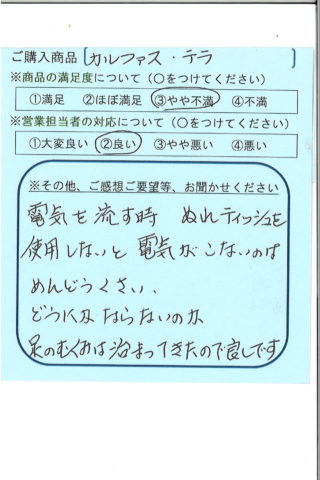 ご購入商品〔カルファス・テラ 〕
※商品の満足度について（○をつけてください）
①満足 ②ほぼ満足 ③やや不満 ④不満
※営業担当者の対応について（○をつけてください）
①大変良い ②良い ③やや悪い ④悪い
※その他、ご感想ご要望等、お聞かせください
電気を流す時 ぬれティッシュを
使用しないと電気がこないのは
めんどうくさい、
どうにかならないのか
足のむくみは治まってきたので良しです